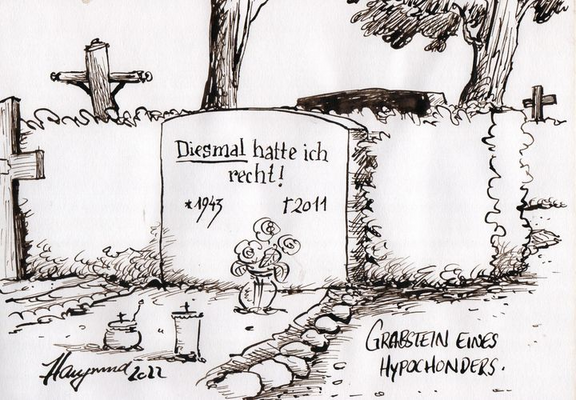 Diesmal hatte ich
recht!
*1943 †2011
GRABSTEIN EINES
HYPOCHONDERS.
2022